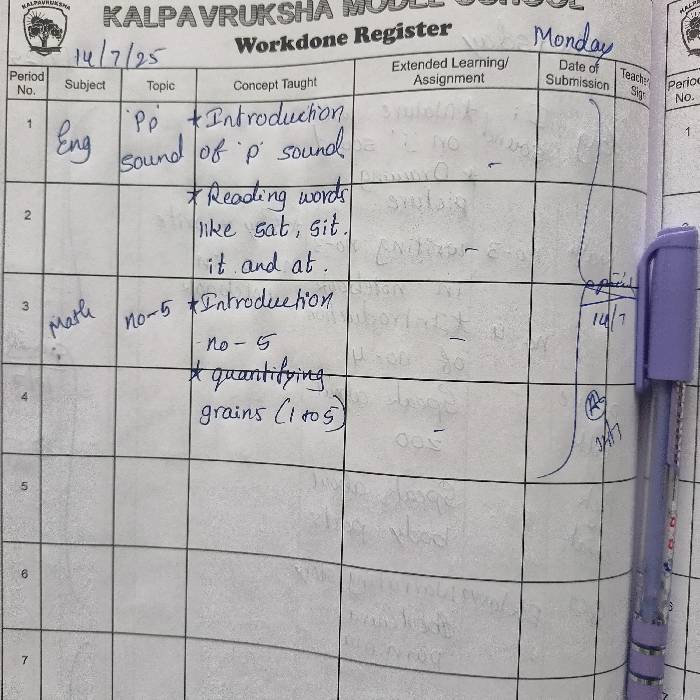 KALPAVRUKSHA
KALPAVRUKSHA MODEL SCHOOL
Workdone Register
14/7/25
Monday
Period No.
Subject
Topic
Concept Taught
Extended Learning/
Assignment
Date of
Submission
Teacher
Sign
1
Eng
'Pp'
sound
* Introduction
of 'p' sound
-
2
* Reading words
like sat, sit.
it and at.
3
Math
no-5
* Introduction
no - 5
-
14/7
4
* quantifying
grains (1 to 5)
-
5
6
7
Period
No.
1